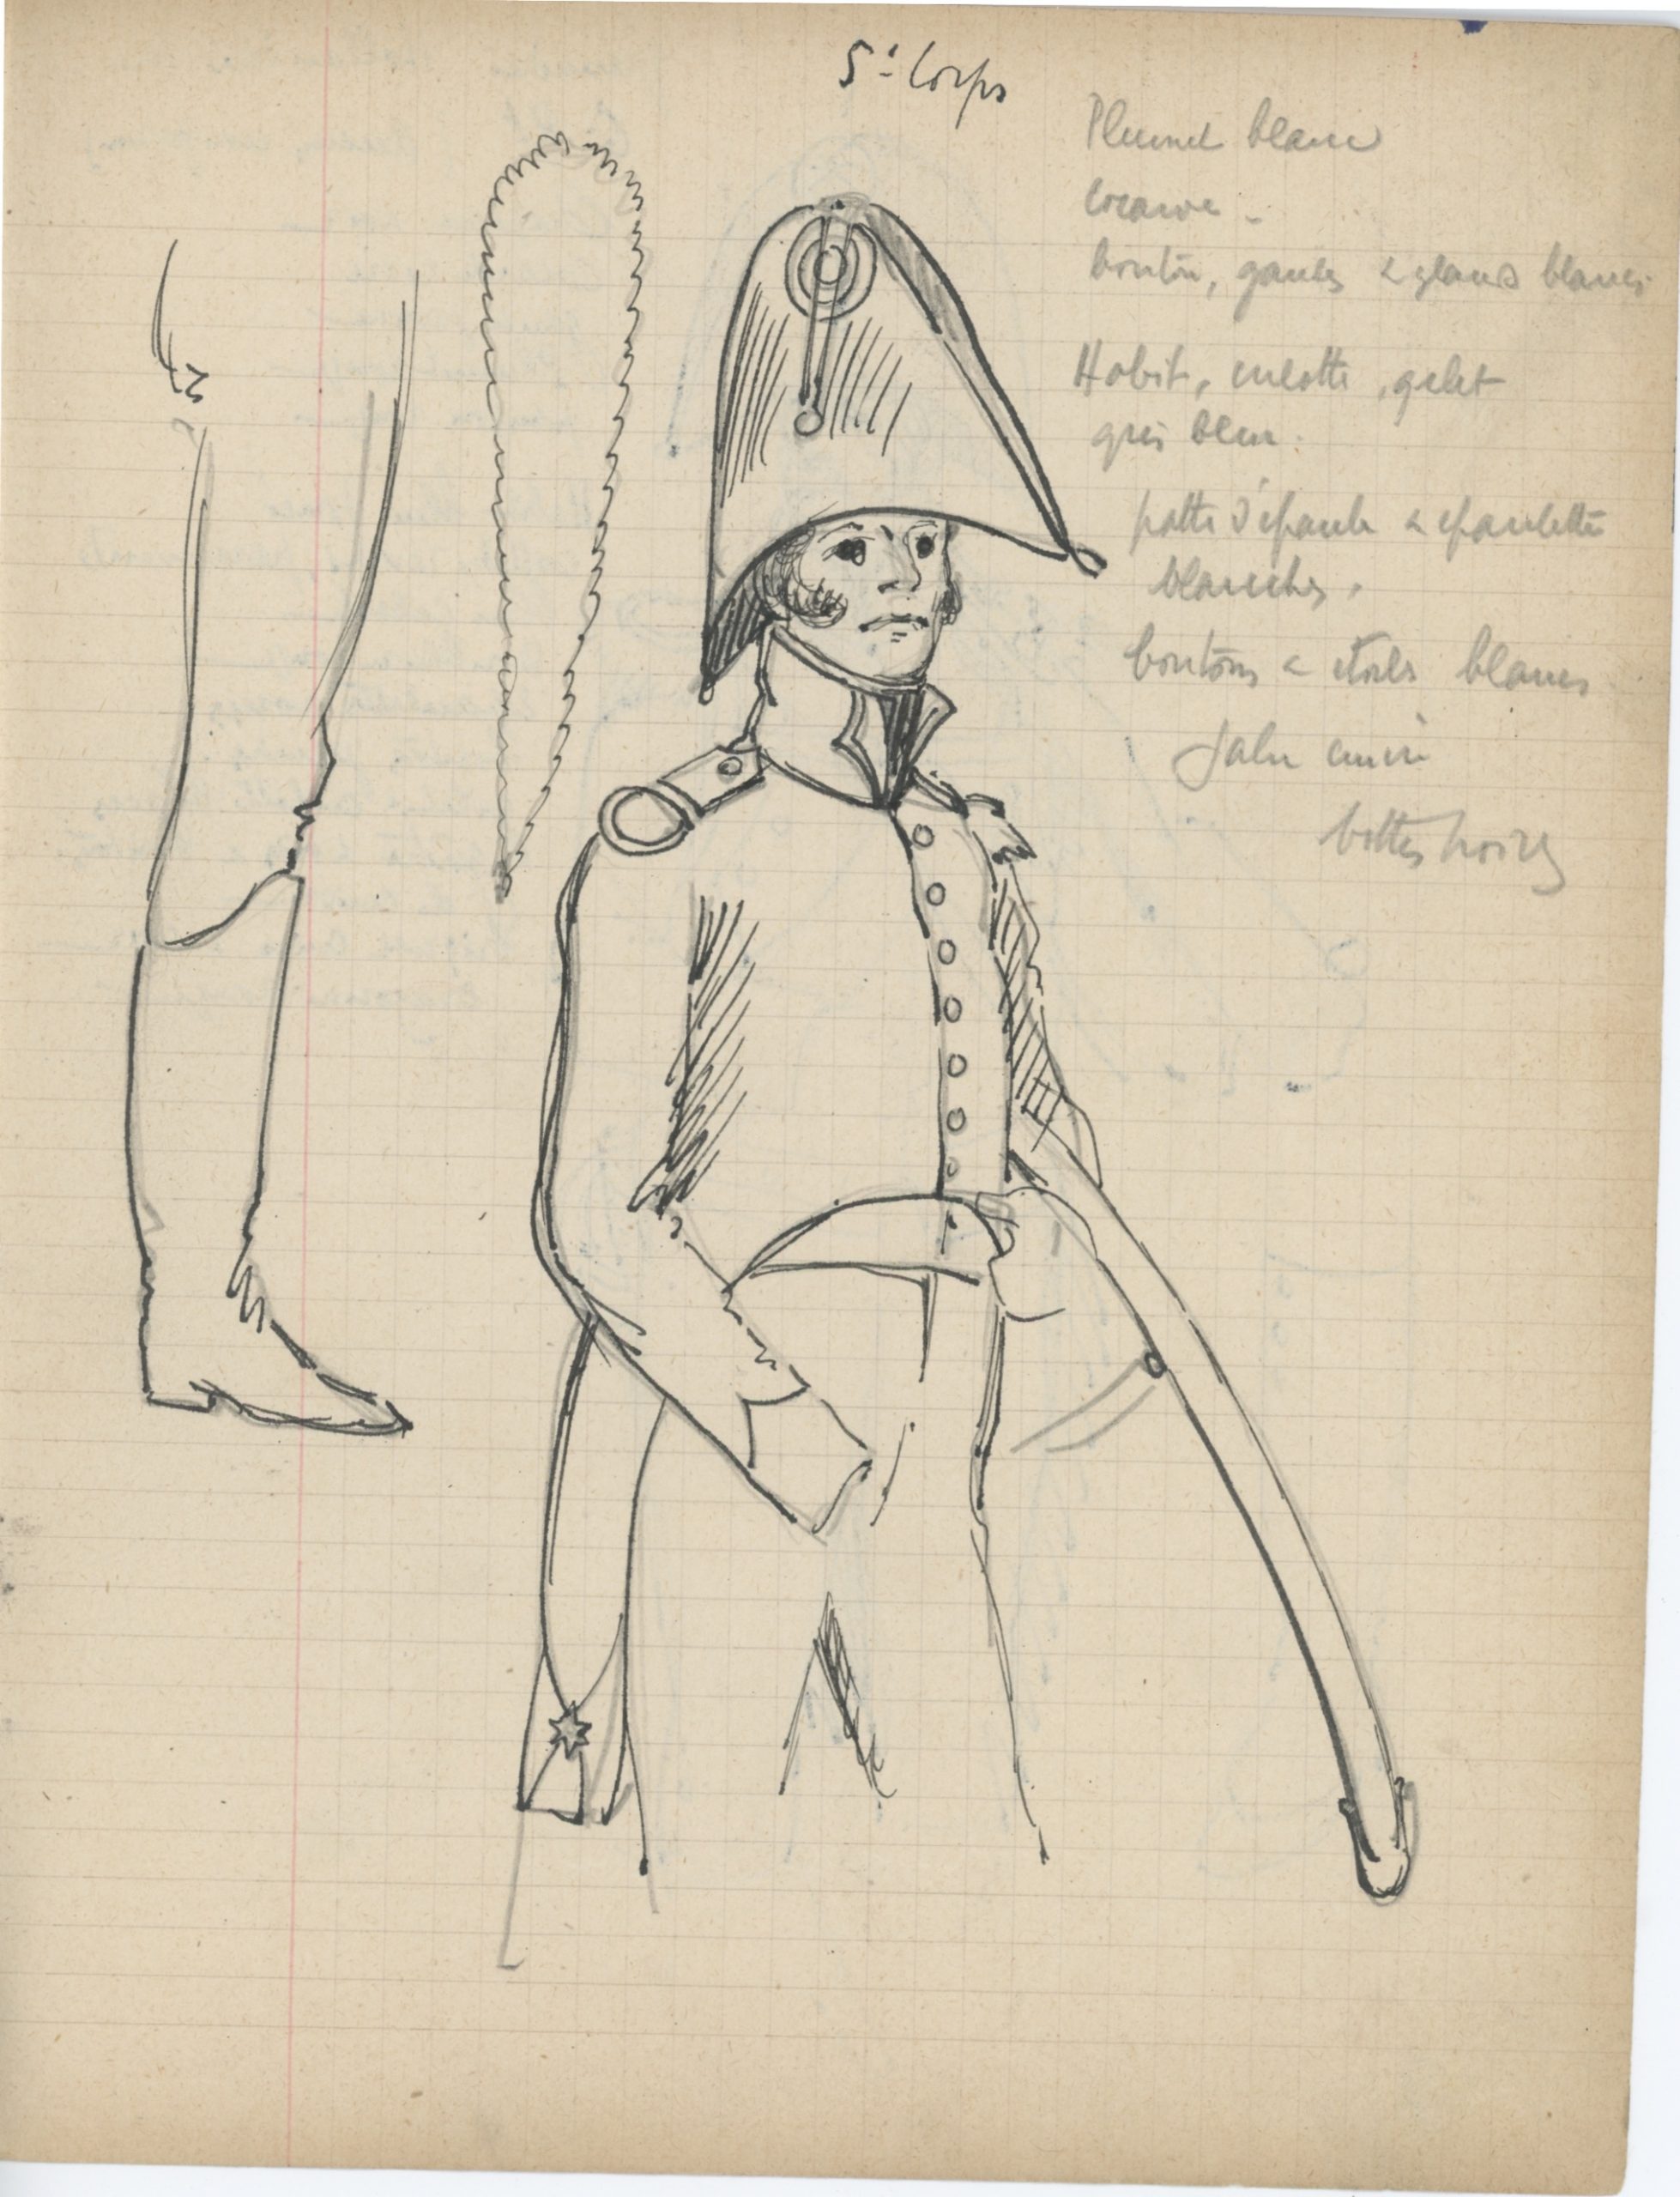 5e Corps
Plumet blanc
cocarde -
bouton, ganses & glands blancs
Habit, culotte, gilet
gris bleu.
patte d'épaule & épaulette
blanches.
boutons & étoiles blancs
sabre cuivre
bottes noires